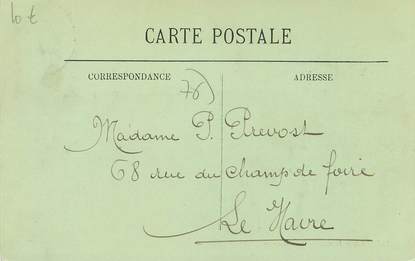 10 €
CARTE POSTALE
CORRESPONDANCE
ADRESSE
76)
Madame P. Prevost
68 rue du champ de foire
Le Havre